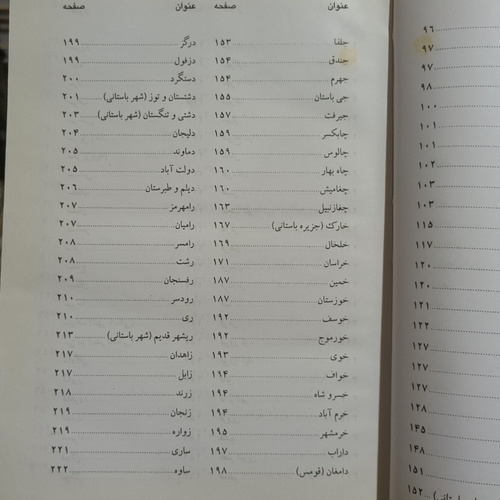 عنوان صفحه
جلفا ۱۵۳
جندق ۱۵۴
جهرم ۱۵۴
جی باستان ۱۵۵
جیرفت ۱۵۷
چابکسر ۱۵۹
چالوس ۱۵۹
چاه بهار ۱۶۰
چغامیش ۱۶۰
چغازنبیل ۱۶۳
خارک (جزیره باستانی) ۱۶۷
خلخال ۱۶۹
خراسان ۱۷۱
خمین ۱۸۷
خوزستان ۱۸۷
خوسف ۱۹۲
خورموج ۱۹۲
خوی ۱۹۳
خواف ۱۹۴
خسرو شاه ۱۹۴
خرم آباد ۱۹۴
خرمشهر ۱۹۵
داراب ۱۹۷
دامغان (قومس) ۱۹۸
عنوان صفحه
درگز ۱۹۹
دزفول ۱۹۹
دستگرد ۲۰۰
دشتستان و توز (شهر باستانی) ۲۰۱
دشتی و تنگستان (شهر باستانی) ۲۰۳
دلیجان ۲۰۴
دماوند ۲۰۵
دولت آباد ۲۰۵
دیلم و طبرستان ۲۰۶
رامهرمز ۲۰۷
رامیان ۲۰۷
رامسر ۲۰۸
رشت ۲۰۸
رفسنجان ۲۰۹
رودسر ۲۱۰
ری ۲۱۰
ریشهر قدیم (شهر باستانی) ۲۱۳
زاهدان ۲۱۷
زابل ۲۱۷
زرند ۲۱۸
زنجان ۲۱۹
زواره ۲۱۹
ساری ۲۲۱
ساوه ۲۲۲
۹۶
۹۷
۹۷
۹۸
۱۰۰
۱۰۱
۱۰۱
۱۰۲
۱۰۳
۱۰۳
۱۱۵
۱۱۷
۱۲۰
۱۲۰
۱۲۱
۱۲۲
۱۲۷
۱۲۷
۱۲۷
۱۲۸
۱۴۵
۱۴۸
۱۵۱
۱۵۲